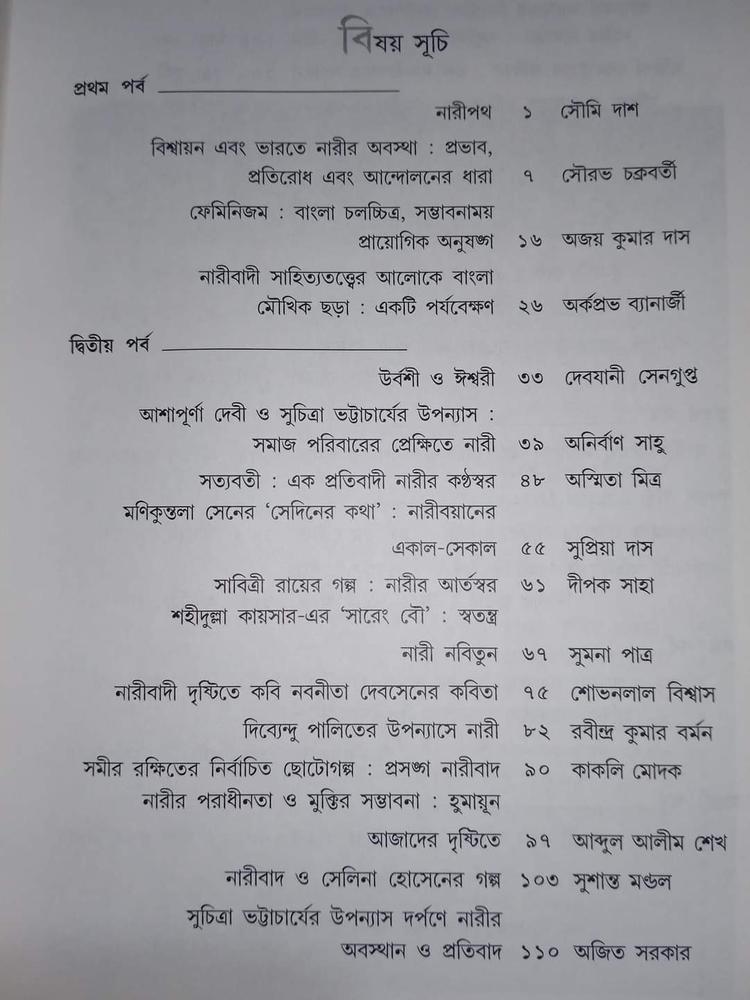 বিষয় সূচি
প্রথম পর্ব
নারীপথ ১ সৌমি দাশ
বিশ্বায়ন এবং ভারতে নারীর অবস্থা : প্রভাব,
প্রতিরোধ এবং আন্দোলনের ধারা ৭ সৌরভ চক্রবর্তী
ফেমিনিজম : বাংলা চলচ্চিত্র, সম্ভাবনাময়
প্রায়োগিক অনুষঙ্গ ১৬ অজয় কুমার দাস
নারীবাদী সাহিত্যতত্ত্বের আলোকে বাংলা
মৌখিক ছড়া : একটি পর্যবেক্ষণ ২৬ অর্কপ্রভ ব্যানার্জী
দ্বিতীয় পর্ব
উর্বশী ও ঈশ্বরী ৩৩ দেবযানী সেনগুপ্ত
আশাপূর্ণা দেবী ও সুচিত্রা ভট্টাচার্যের উপন্যাস :
সমাজ পরিবারের প্রেক্ষিতে নারী ৩৯ অনির্বাণ সাহু
সত্যবতী : এক প্রতিবাদী নারীর কণ্ঠস্বর ৪৮ অস্মিতা মিত্র
মণিকুন্তলা সেনের ‘সেদিনের কথা’ : নারীবয়ানের
একাল-সেকাল ৫৫ সুপ্রিয়া দাস
সাবিত্রী রায়ের গল্প : নারীর আর্তস্বর ৬১ দীপক সাহা
শহীদুল্লা কায়সার-এর ‘সারেং বৌ’ : স্বতন্ত্র
নারী নবিতুন ৬৭ সুমনা পাত্র
নারীবাদী দৃষ্টিতে কবি নবনীতা দেবসেনের কবিতা ৭৫ শোভনলাল বিশ্বাস
দিব্যেন্দু পালিতের উপন্যাসে নারী ৮২ রবীন্দ্র কুমার বর্মন
সমীর রক্ষিতের নির্বাচিত ছোটোগল্প : প্রসঙ্গ নারীবাদ ৯০ কাকলি মোদক
নারীর পরাধীনতা ও মুক্তির সম্ভাবনা : হুমায়ূন
আজাদের দৃষ্টিতে ৯৭ আব্দুল আলীম শেখ
নারীবাদ ও সেলিনা হোসেনের গল্প ১০৩ সুশান্ত মণ্ডল
সুচিত্রা ভট্টাচার্যের উপন্যাস দর্পণে নারীর
অবস্থান ও প্রতিবাদ ১১০ অজিত সরকার